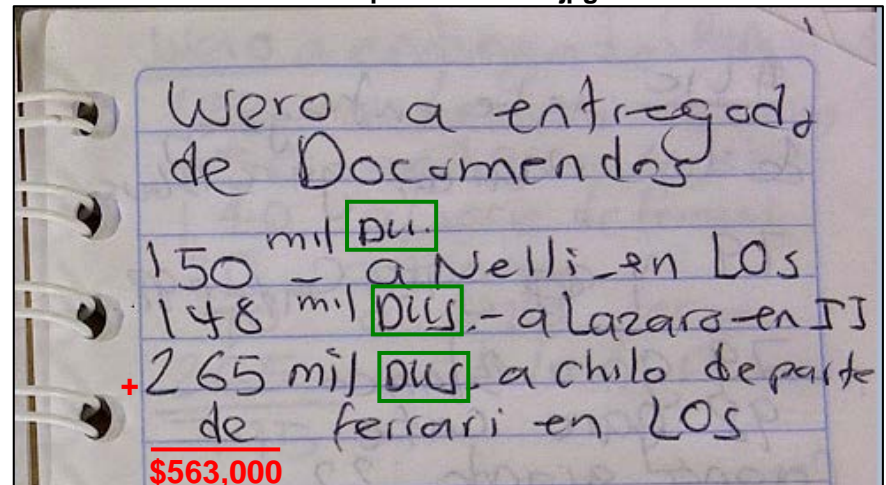 Wero a entregado
de Docomendos
150 mil DLL.
- a Nelli - en LOs
148 mil DLLS. - a Lazaro - en JJ
+ 265 mil DLLS. a chilo de parte
de ferrari en LOs
$563,000